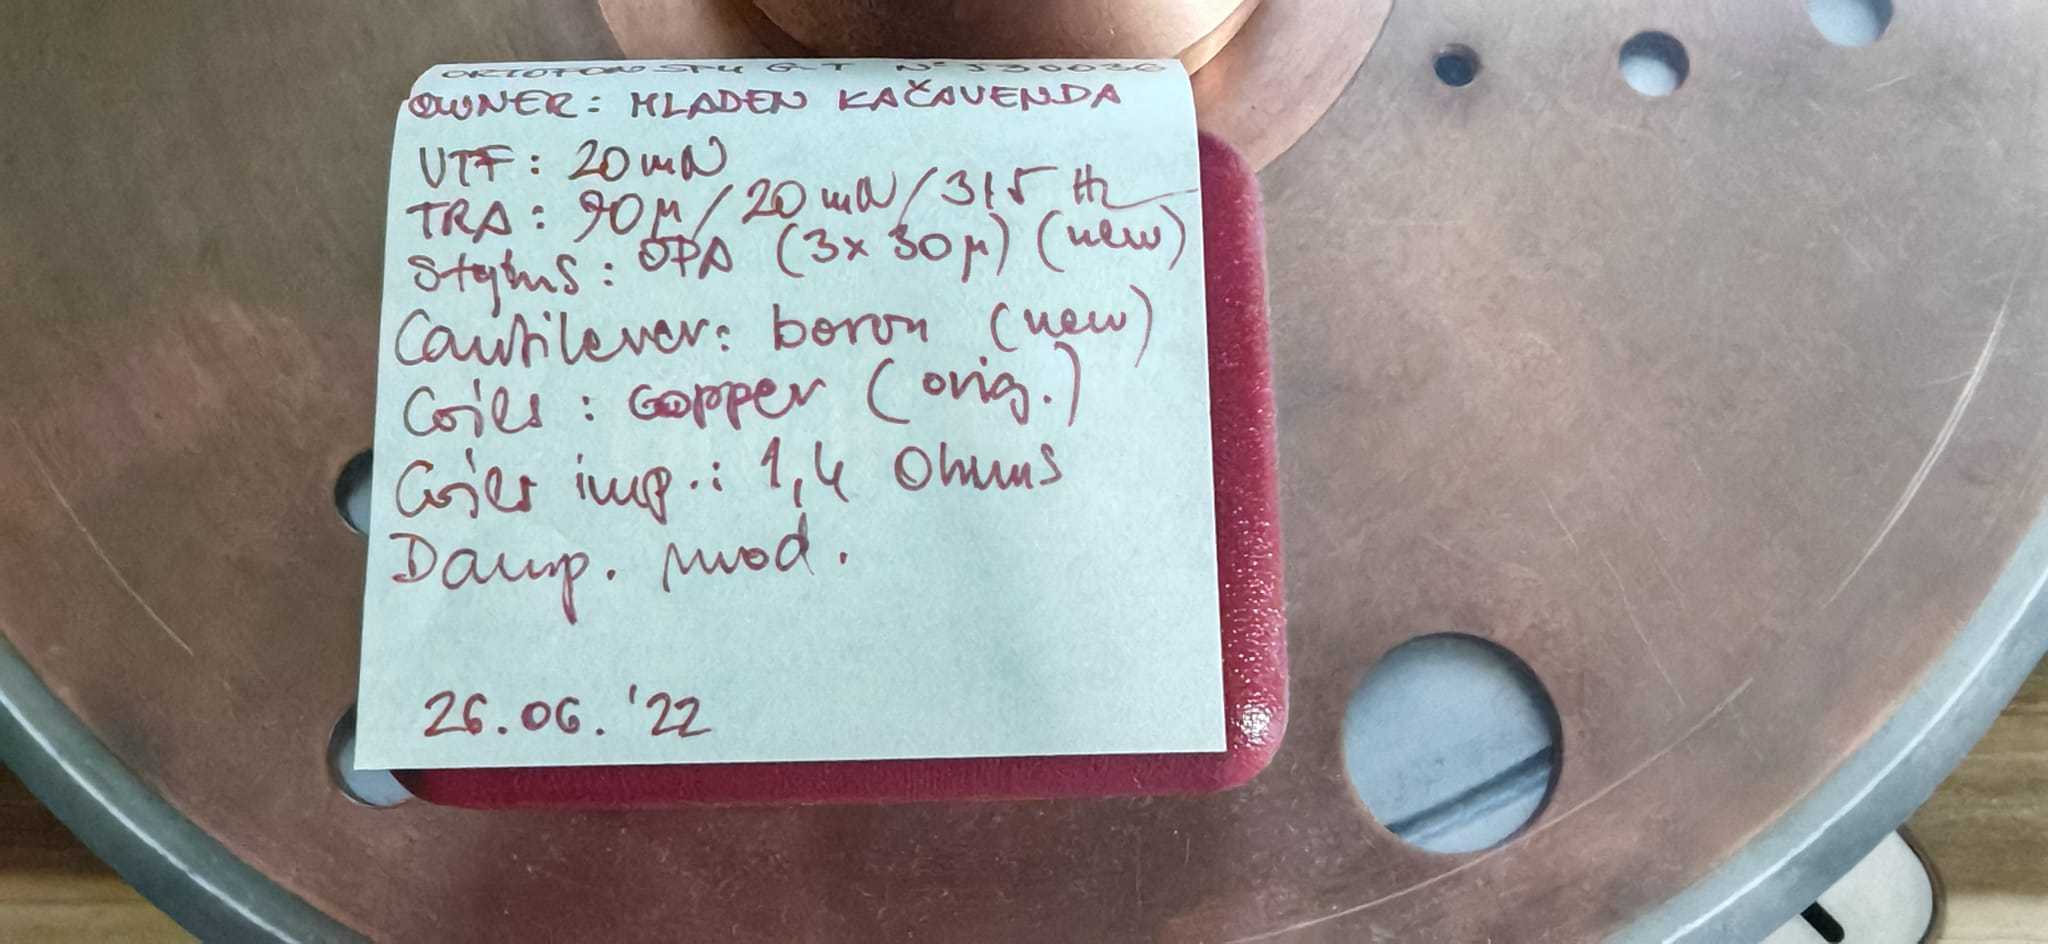 ORTOFON SPU G-T N° J30036
OWNER: MLADEN KAČAVENDA
VTF: 20 mN
TRA: 90μ/20 mN/315 Hz
Stylus: OPA (3x30μ) (new)
Cantilever: boron (new)
Coils: copper (orig.)
Coils imp.: 1,4 Ohms
Damp. mod.
26.06.'22